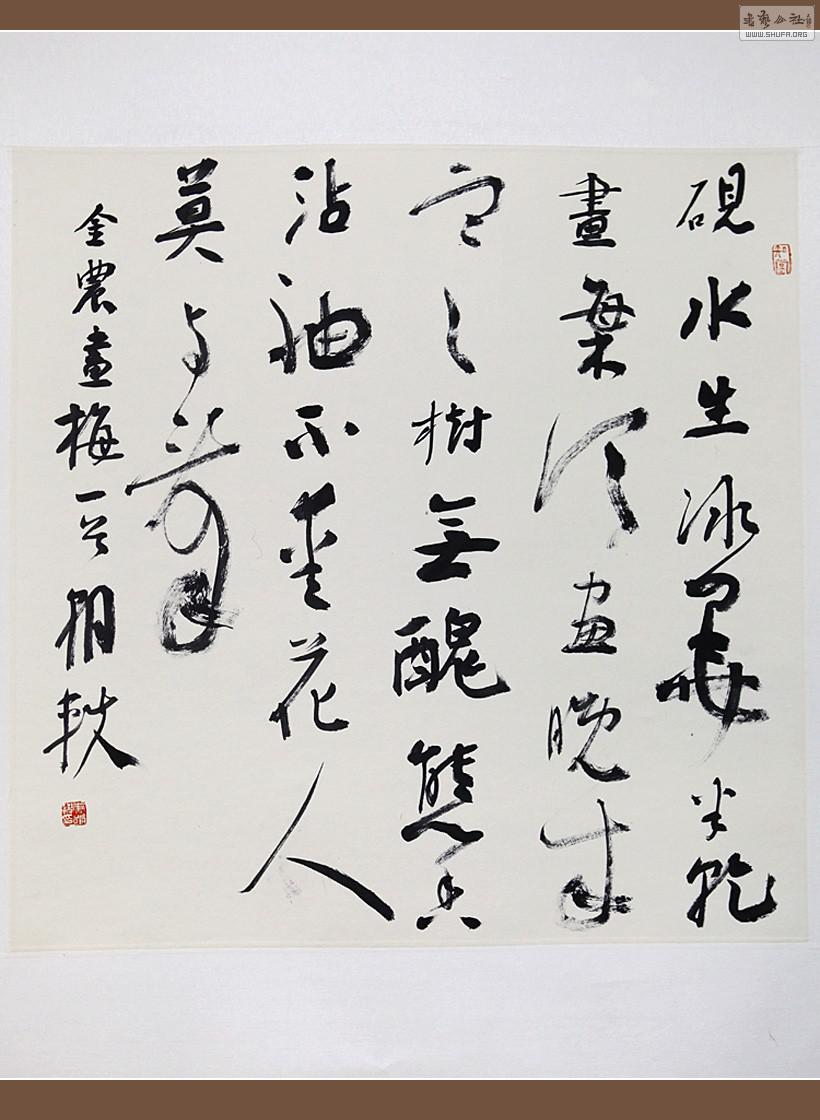 書藝公社
WWW.SHUFA.ORG
硯水生冰墨半乾
畫梅須画晚来
寒樹無醜態香
沾袖不愛花人
莫与看
金農畫梅一首